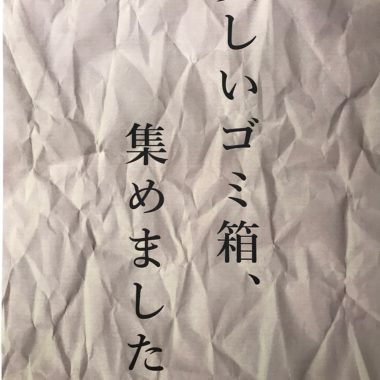 しいゴミ箱、
集めました